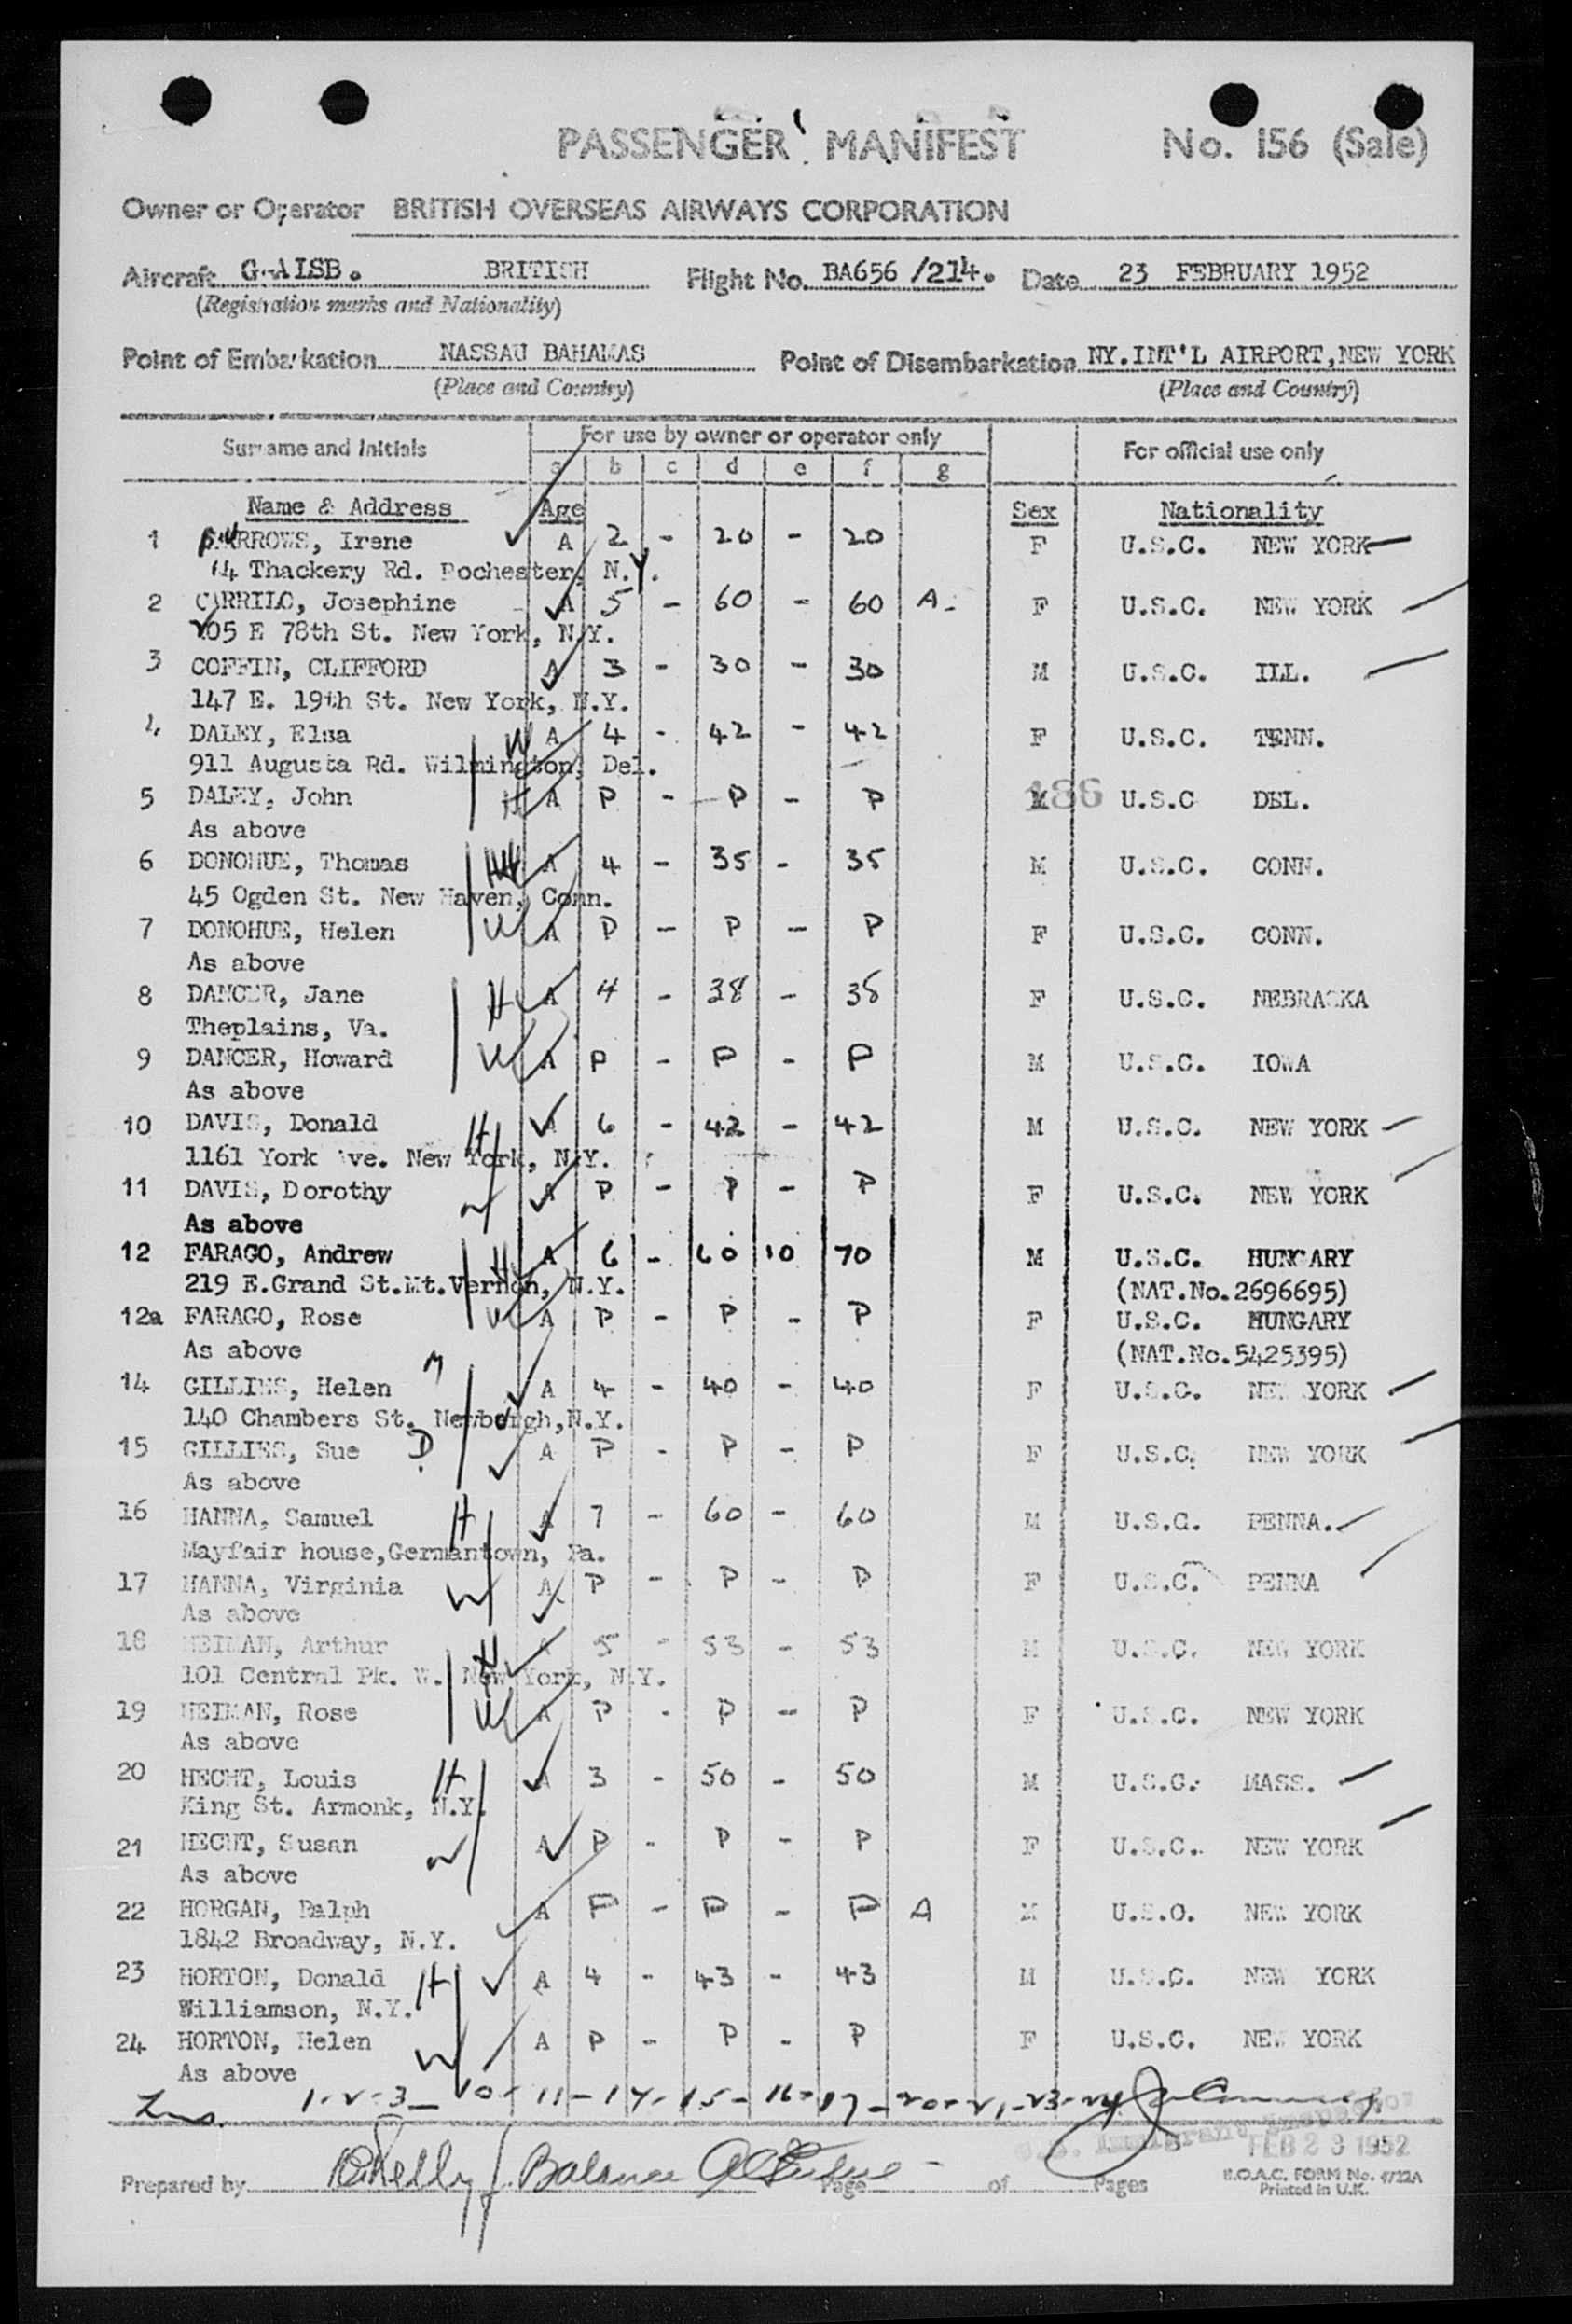 PASSENGER MANIFEST No. 156 (Sale)
Owner or Operator BRITISH OVERSEAS AIRWAYS CORPORATION
Aircraft G-AISB. BRITISH Flight No. BA656/214. Date 23 FEBRUARY 1952
(Registration marks and Nationality)
Point of Embarkation NASSAU BAHAMAS Point of Disembarkation NY.INT'L AIRPORT,NEW YORK
(Place and Country) (Place and Country)
Surname and Initials For use by owner or operator only For official use only
a b c d e f g
Name & Address Age Sex Nationality
1 BURROWS, Irene A 2 - 20 - 20 F U.S.C. NEW YORK
Thackery Rd. Rochester, N.Y.
2 CARRILO, Josephine A 5 - 60 - 60 A. F U.S.C. NEW YORK
205 E 78th St. New York, N.Y.
3 COFFIN, CLIFFORD A 3 - 30 - 30 M U.S.C. ILL.
147 E. 19th St. New York, N.Y.
4 DALEY, Elsa W A 4 - 42 - 42 F U.S.C. TENN.
911 Augusta Rd. Wilmington, Del.
5 DALEY, John H A P - P - P M 186 U.S.C DEL.
As above
6 DONOHUE, Thomas A 4 - 35 - 35 M U.S.C. CONN.
45 Ogden St. New Haven, Conn.
7 DONOHUE, Helen W A P - P - P F U.S.C. CONN.
As above
8 DANCER, Jane H A 4 - 38 - 38 F U.S.C. NEBRASKA
Theplains, Va.
9 DANCER, Howard W A P - P - P M U.S.C. IOWA
As above
10 DAVIS, Donald H A 6 - 42 - 42 M U.S.C. NEW YORK
1161 York Ave. New York, N.Y.
11 DAVIS, Dorothy W A P - P - P F U.S.C. NEW YORK
As above
12 FARAGO, Andrew H A 6 - 60 10 70 M U.S.C. HUNGARY
219 E.Grand St.Mt.Vernon, N.Y. (NAT.No.2696695)
12a FARAGO, Rose W A P - P - P F U.S.C. HUNGARY
As above (NAT.No.5425395)
14 GILLIES, Helen M A 4 - 40 - 40 F U.S.C. NEW YORK
140 Chambers St. Newburgh,N.Y.
15 GILLIES, Sue D A P - P - P F U.S.C. NEW YORK
As above
16 HANNA, Samuel H A 7 - 60 - 60 M U.S.C. PENNA.
Mayfair house,Germantown, Pa.
17 HANNA, Virginia W A P - P - P F U.S.C. PENNA
As above
18 HEIMAN, Arthur H A 5 - 53 - 53 M U.S.C. NEW YORK
101 Central Pk. W. New York, N.Y.
19 HEIMAN, Rose W A P - P - P F U.S.C. NEW YORK
As above
20 HECHT, Louis H A 3 - 50 - 50 M U.S.C. MASS.
King St. Armonk, N.Y.
21 HECHT, Susan W A P - P - P F U.S.C. NEW YORK
As above
22 HORGAN, Ralph A P - P - P A M U.S.C. NEW YORK
1842 Broadway, N.Y.
23 HORTON, Donald H A 4 - 43 - 43 M U.S.C. NEW YORK
Williamson, N.Y.
24 HORTON, Helen W A P - P - P F U.S.C. NEW YORK
As above
1-2-3-10-11-14-15-16-17-20-21-23-24
U.S. Immigrant Inspector
FEB 23 1952
Prepared by Page of Pages B.O.A.C. FORM No. 4722A
Printed in U.K.